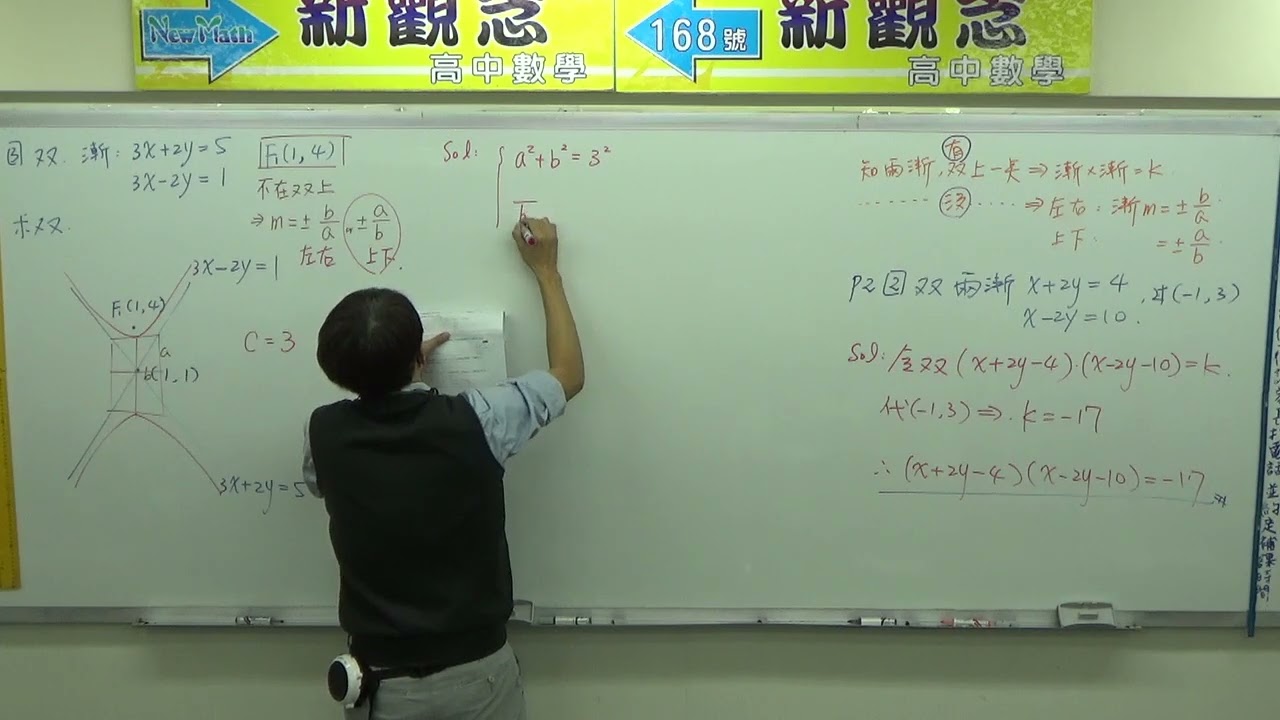 NewMath 新觀念
高中數學
168號 新觀念
高中數學
双. 漸: 3x+2y=5
3x-2y=1
F₁(1,4)
不在双上
⇒ m=± b/a, ± a/b
左右 上下.
求双.
3x-2y=1
F₁(1,4)
a
b(1,1)
3x+2y=5
C=3
Sol:
a²+b²=3²
b
有
知兩漸,双上一点⇒漸×漸=k
没
⇒左右: 漸m=± b/a
上下: =± a/b.
P2 2 双 兩漸 x+2y=4
x-2y=10.
,过(-1,3)
Sol: 全双(x+2y-4)·(x-2y-10)=k.
代(-1,3)⇒k=-17
∴(x+2y-4)(x-2y-10)=-17